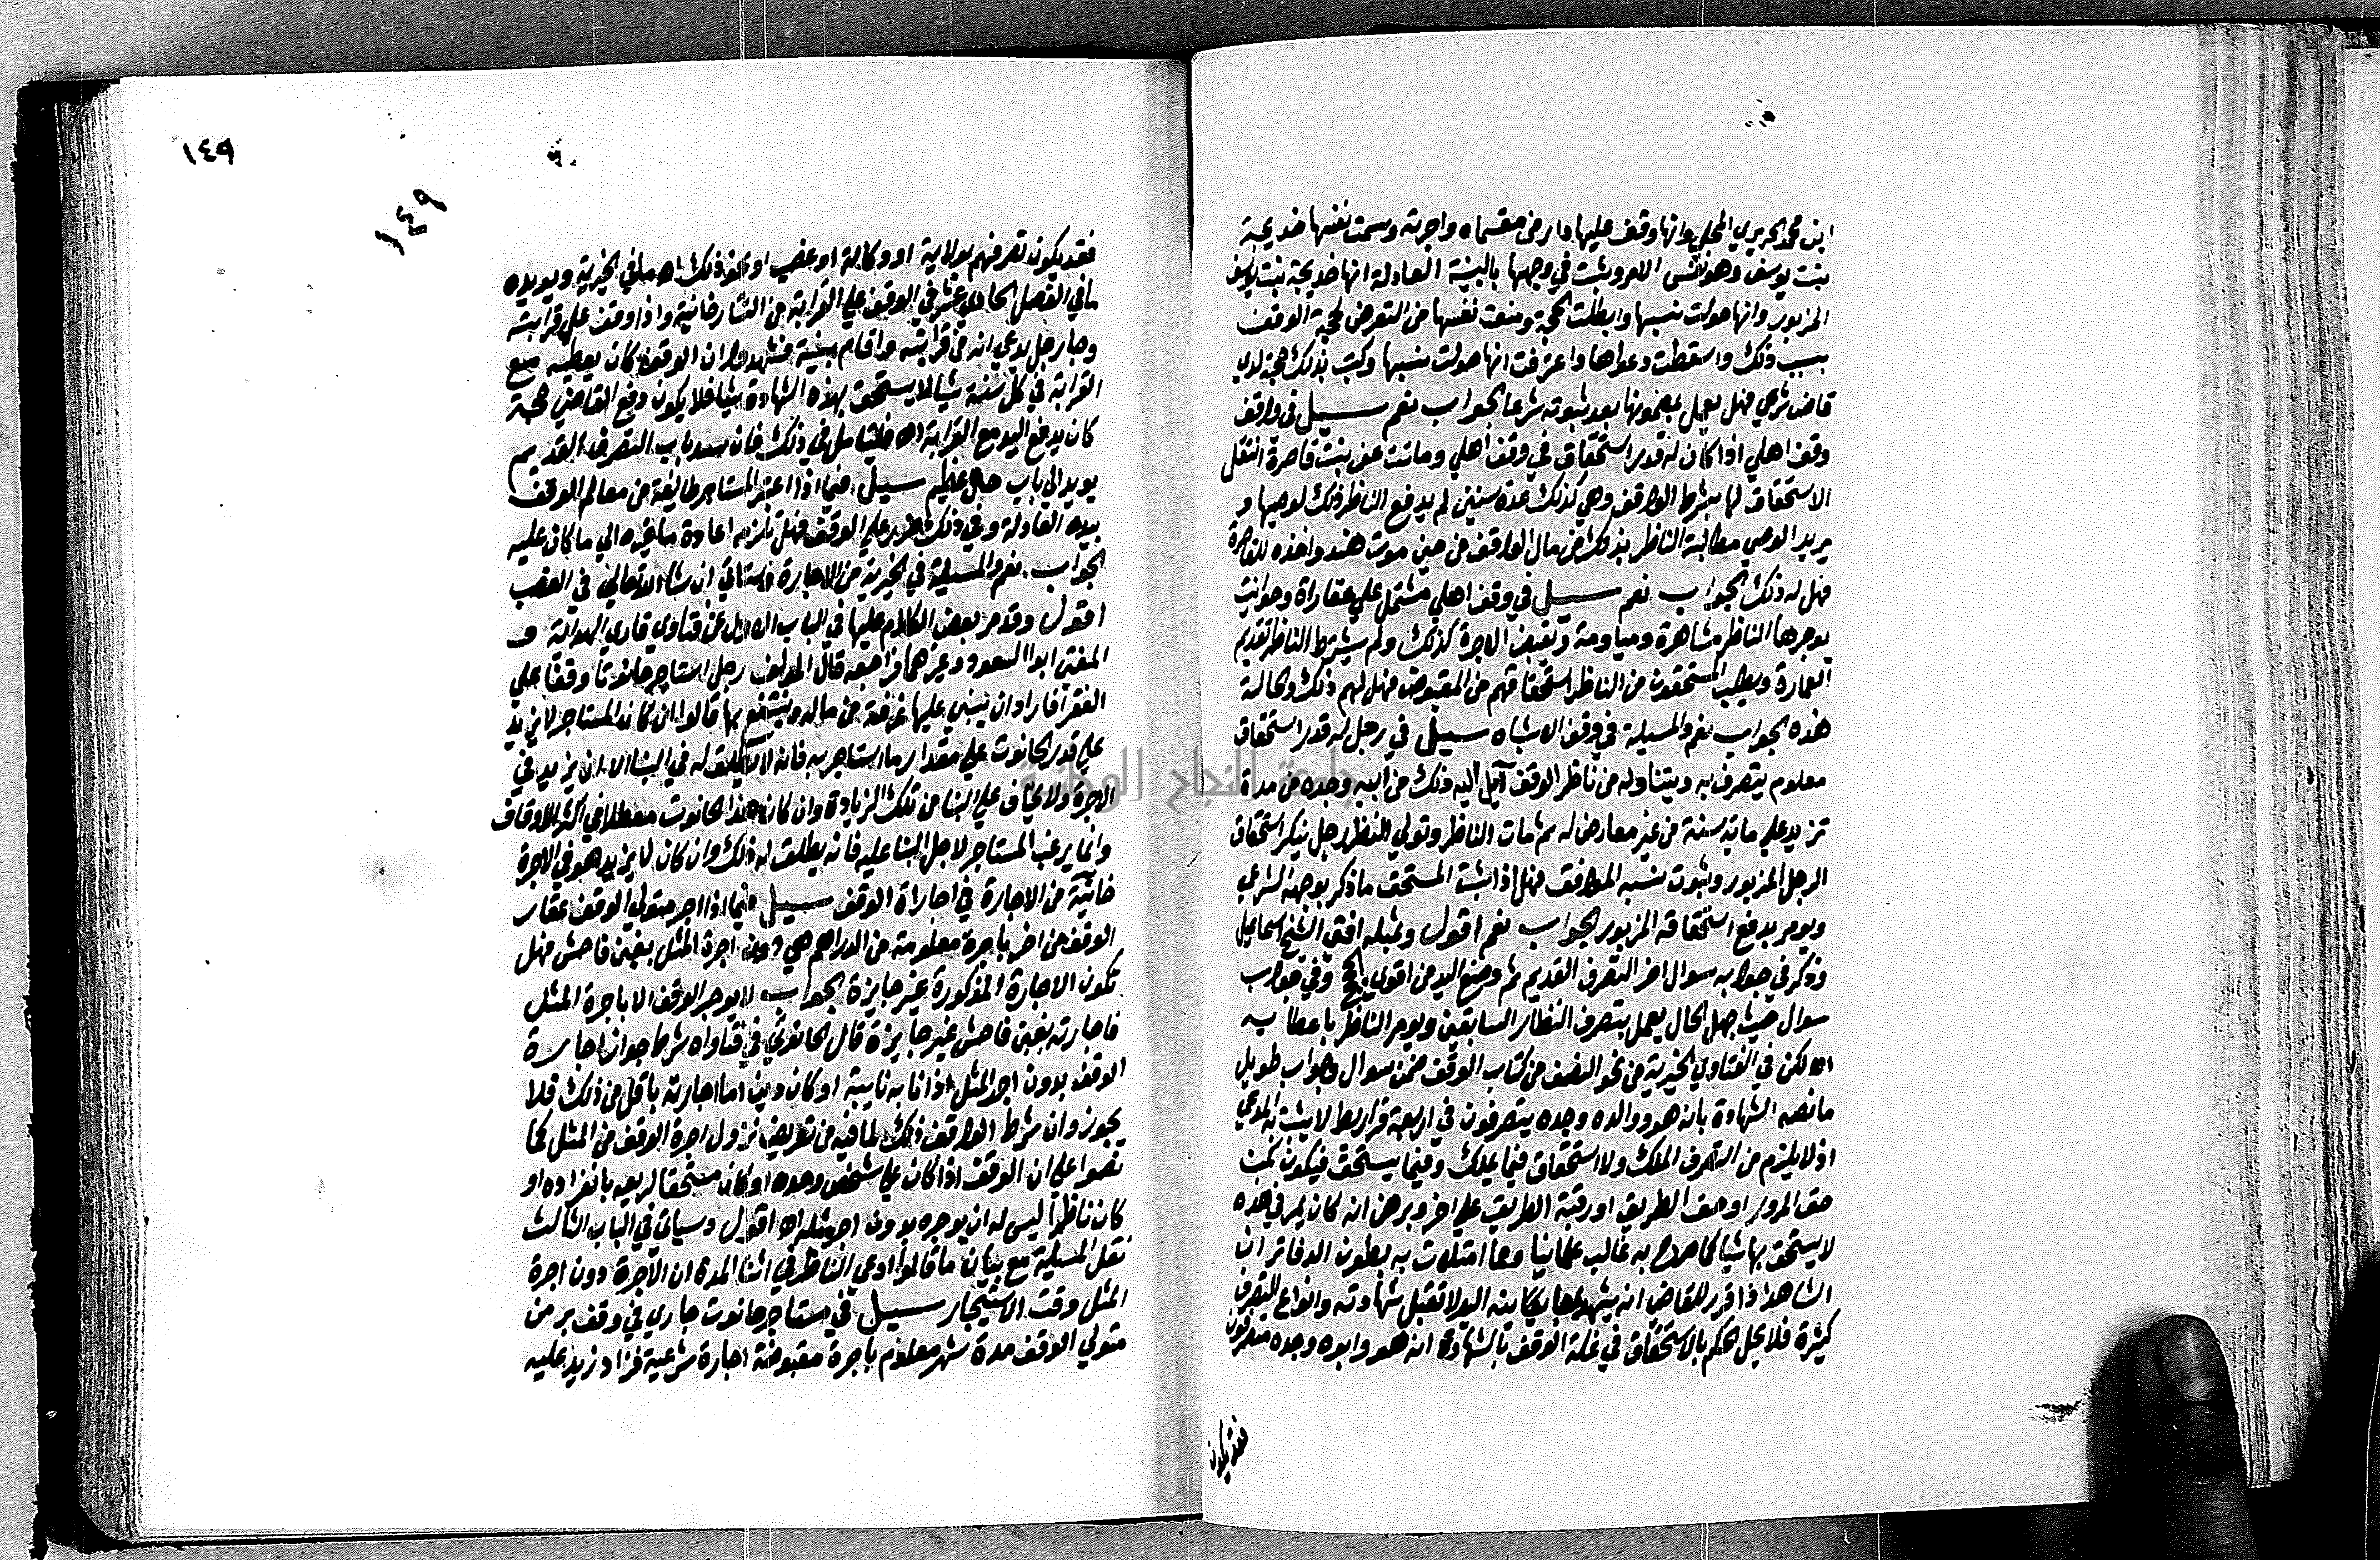 ابن محمد الحريري المحلي وانها وقف عليها دار من مقسماه واجرته وسمت نفسها خديجة
بنت يوسف وهو نفس الامر وثبت في وجهها بالبينة العادلة انها خديجة بنت يوسف
المزبور وانها حولت نسبها وابطلت الحجة ومنعت نفسها من التعرض لجهة الوقف
بسبب ذلك واسقطت دعواها واعترفت انها حولت نسبها وكتب بذلك حجة لدي
قاض شرعي فهل يعمل بمضمونها بعد ثبوته شرعا الجواب نعم سيل في واقف
وقف اهلي اذا كان له قدر استحقاق في وقف اهلي وماتت عن بنت قاصرة انتقل
الاستحقاق لها بشرط الواقف وهي كذلك عدة سنين لم يدفع الناظر ذلك لوصيها و
يريد الوصي مطالبة الناظر بذلك من مال الواقف من حين موت هند واخذه للقاصرة
فهل له ذلك الجواب نعم سيل في وقف اهلي مشتمل علي عقاراة وحوانيت
يوجرها الناظر مشاهرة ومياومة ويقبض الاجرة كذلك ولم يشترط الناظر تقديم
العمارة ويطلب المستحقون من الناظر استحقاقهم من المقبوض فهل لهم ذلك والحالة
هذه الجواب نعم والمسيلة في وقف الاشباه سيل في رجل له قدر استحقاق
معلوم يتصرف به ويتناوله من ناظر الوقف آيل اليه ذلك من ابيه وجده من مدة
تزيد علي ماية سنة من غير معارض له ثم مات الناظر وتولي النظر رجل ينكر استحقاق
الرجل المزبور وثبوت نسبه الموافق فهل اذا اثبت المستحق ما ذكر بوجهه الشرعي
ويومر بدفع استحقاقه المزبور الجواب نعم اقول وبمثله افتي الشيخ اسماعيل
وذكر في جوابه سوال اخر التصرف القديم ثم وضع اليد من اقوي الحجج وفي جواب
سوال حيث جهل الحال يعمل بتصرف النظار السابقين ويومر الناظر باعطايه
اه لكن في الفتاوي الخيرية من نحو النصف من كتاب الوقف ضمن سوال وجواب طويل
ما نصه الشهادة بانه هو ووالده وجده يتصرفون في اربعة قراريط لا يثبت به المدعي
اذ لا يلزم من التصرف الملك ولا استحقاق فيما يملك وفيما يستحق فيكون كمن
حق المرور او حق الطريق او رقبة الطريق علي اخر وبرهن انه كان يمر في هذه
لا يستحق بها شيا كما صرح به غالب علماينا ومما امتلات به بطون الدفاتر ان
الشاهد اذا قرر للقاضي انه يشهد بمعاينة اليد لا تقبل شهادته وانواع التصرف
كثيرة فلا يحل الحكم بالاستحقاق في غلة الوقف بالشهادة انه هو وابوه وجده متصرفون
فقد يكون
١٤٩
١٤٩
فقد يكون تصرفهم بولاية او وكالة او غصب او نحو ذلك اه ما في الخيرية ويويده
ما في الفصل الحادي عشر في الوقف علي القرابة من التتارخانية واذا وقف علي قرابته
وجا رجل يدعي انه من قرابته واقام بينة فشهدوا ان الواقف كان يعطيه مع
القرابة في كل سنة شيا لا يستحق بهذه الشهادة شيا فلا يكون دفع القاضي حجة
كان يدفع اليه مع القرابة اه فليتامل في ذلك فان سد باب التصرف القديم
يودي الي باب خلل عظيم سيل فيما اذا غير المستاجر طايفة من معالم الوقف
بيده العادلة وفي ذلك ضرر علي الوقف فهل تلزمه اعادة ما غيره الي ما كان عليه
الجواب نعم والمسيلة في الخيرية من الاجارة وستاتي ان شا الله تعالي في الغصب
اقول وقد مر بعض الكلام عليها في الباب الاول عن فتاوي قاري الهداية و
المفتي ابو السعود وغيرهما فراجعه قال المولف رجل استاجر حانوتا وقفا علي
الفقرا فاراد ان يبني عليها غرفة من ماله وينتفع بها قالوا ان كان المستاجر لا يزيد
علي قدر الحانوت علي مقدار ما استاجر به فانه لا يطلق له في البنا الا ان يزيد في
الاجرة ولا يخاف علي البنا من تلك الزيادة وان كان هذا الحانوت معطلا في اكثر الاوقاف
وانما يرغب المستاجر لاجل البنا عليه فانه يطلق له ذلك وان كان لا يزيد هو في الاجرة
خانية من الاجارة في اجاراة الوقف سيل فيما اذا اجر متولي الوقف عقار
الوقف من اخر باجرة معلومة من الدراهم هي دون اجرة المثل بغبن فاحش فهل
تكون الاجارة المذكورة غير جايزة الجواب لا يوجر الوقف الا باجرة المثل
فاجارته بغبن فاحش غير جايزة قال الحانوتي في فتاواه شرط جواز اجارة
الوقف بدون اجر المثل اذا نابه نايبة او كان دين اما اجارته باقل من ذلك فلا
يجوز وان شرط الواقف ذلك لما فيه من تعريض نزول اجرة الوقف من المثل كما
نصوا علي ان الوقف اذا كان علي شخص وحده او كان مستحقا لريعه بانفراده او
كان ناظرا ليس له ان يوجره بدون اجر مثله اه اقول وسياتي في الباب الثالث
نقل المسيلة مع بيان ما قالوا ادعي الناظر في اثنا المدة ان الاجرة دون اجرة
المثل وقت الاستيجار سيل في مستاجر حانوت جاري في وقف بر من
متولي الوقف مدة شهر معلوم باجرة مقبوضة اجارة شرعية فزاد زيد عليه
جامعة النجاح الوطنية